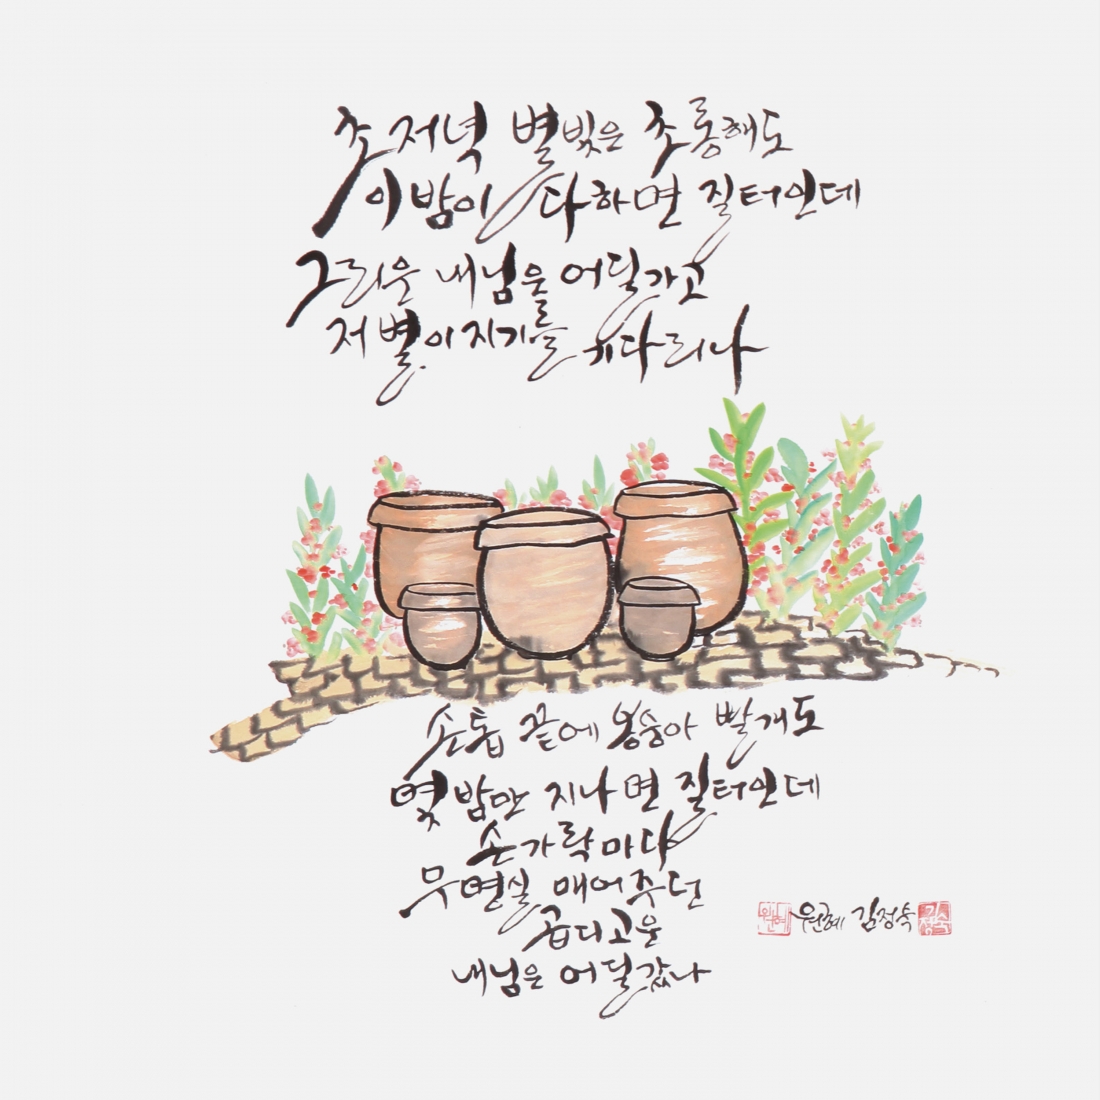 초저녁 별빛은 초롱해도
이 밤이 다하면 질터인데
그리운 내님은 어딜가고
저 별이 지기를 기다리나
손톱 끝에 봉숭아 빨개도
몇 밤만 지나면 질터인데
손가락마다
무명실 매어주던
곱디고운
내님은 어딜갔나
원혜 원혜 김정숙 김정숙